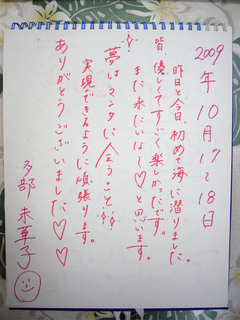 2009年10月17~18日
昨日と今日、初めて海に潜りました。
皆、優しくてすごく楽しかったです。
また来たいな~♡と思います。
夢はマンタに会うこと!!
実現できるように頑張ります。
ありがとうございました♡♡
多部 未華子